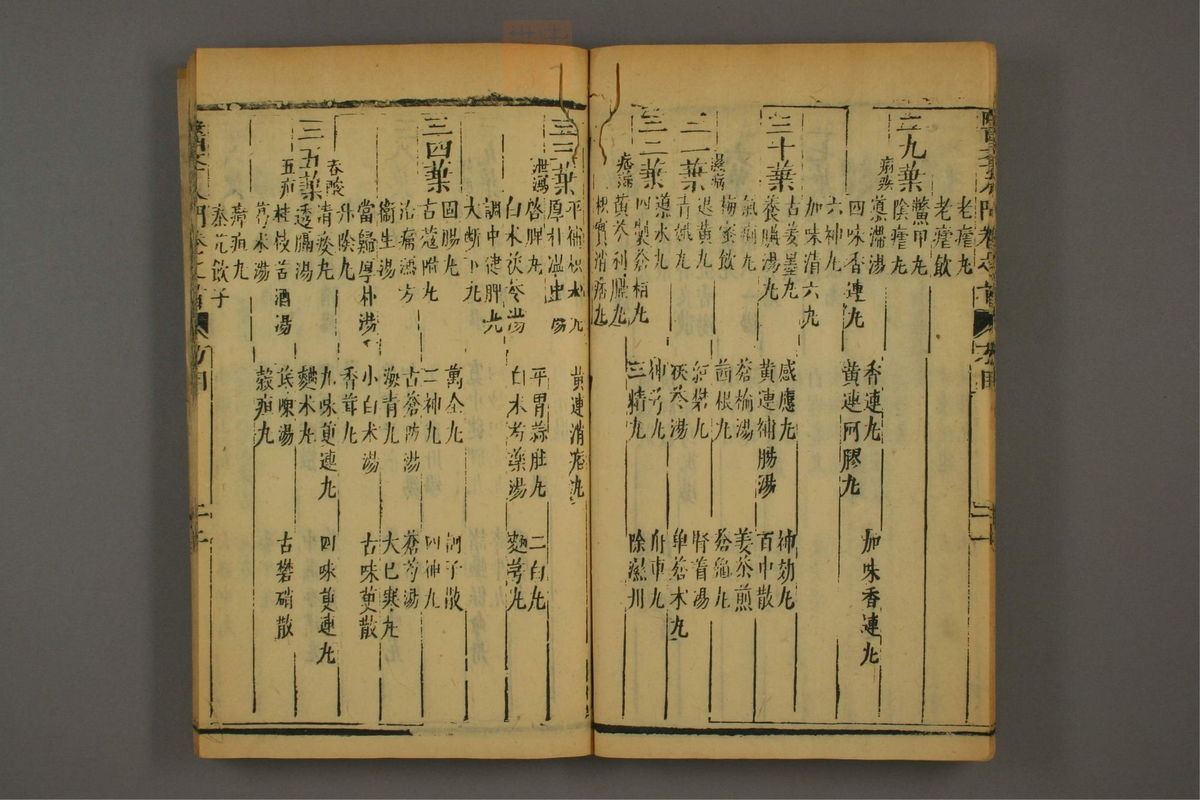 老瘧丸
老瘧飲
鱉甲丸
陰瘧丸
二九葉
痢疾
導滯湯
四味香連丸 香連丸 加味香連丸
六神丸 黃連阿膠丸
加味清六丸
三十葉
古姜墨丸 感應丸 神効丸
養臟湯 黃連補腸湯 百中散
氣痢丸 蒼榆湯 姜茶煎
梅蜜飲 茵根丸 蒼龜丸
三一葉
濕病
退黃丸 紅礬丸 腎着湯
青娥丸 茯苓湯 單蒼朮丸
導水丸 神芎丸 舟車丸
三二葉
四製蒼柏丸 三精丸 除濕丹
痞滿
黃芩利膈丸
枳實消痞丸
平補枳朮丸 黃連消痞丸
三三葉
厚朴溫中湯
泄瀉
啓脾丸 平胃蒜肚丸 二白丸
白朮茯苓湯 白朮芍藥湯 麴芎丸
調中健脾丸
大斷下丸
固腸丸 萬全丸 訶子散
三四葉
古蔻附丸 二神丸 四神丸
治痛瀉方 古蒼防湯 蒼芍湯
衛生湯 海青丸 大已寒丸
當歸厚朴湯 小白朮湯 古味萸散
吞酸
升陰丸 香茸丸
清痰丸 九味萸連丸 四味萸連丸
三五葉
透膈湯 麯朮丸
五疸
桂枝苦酒湯 茵蔯湯 古礬硝散
苽朮湯 穀疸丸
癉疸丸
秦艽飲子